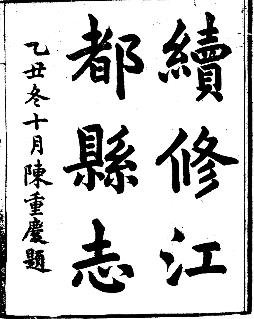 續修江
都縣志
乙丑冬十月陳重慶題